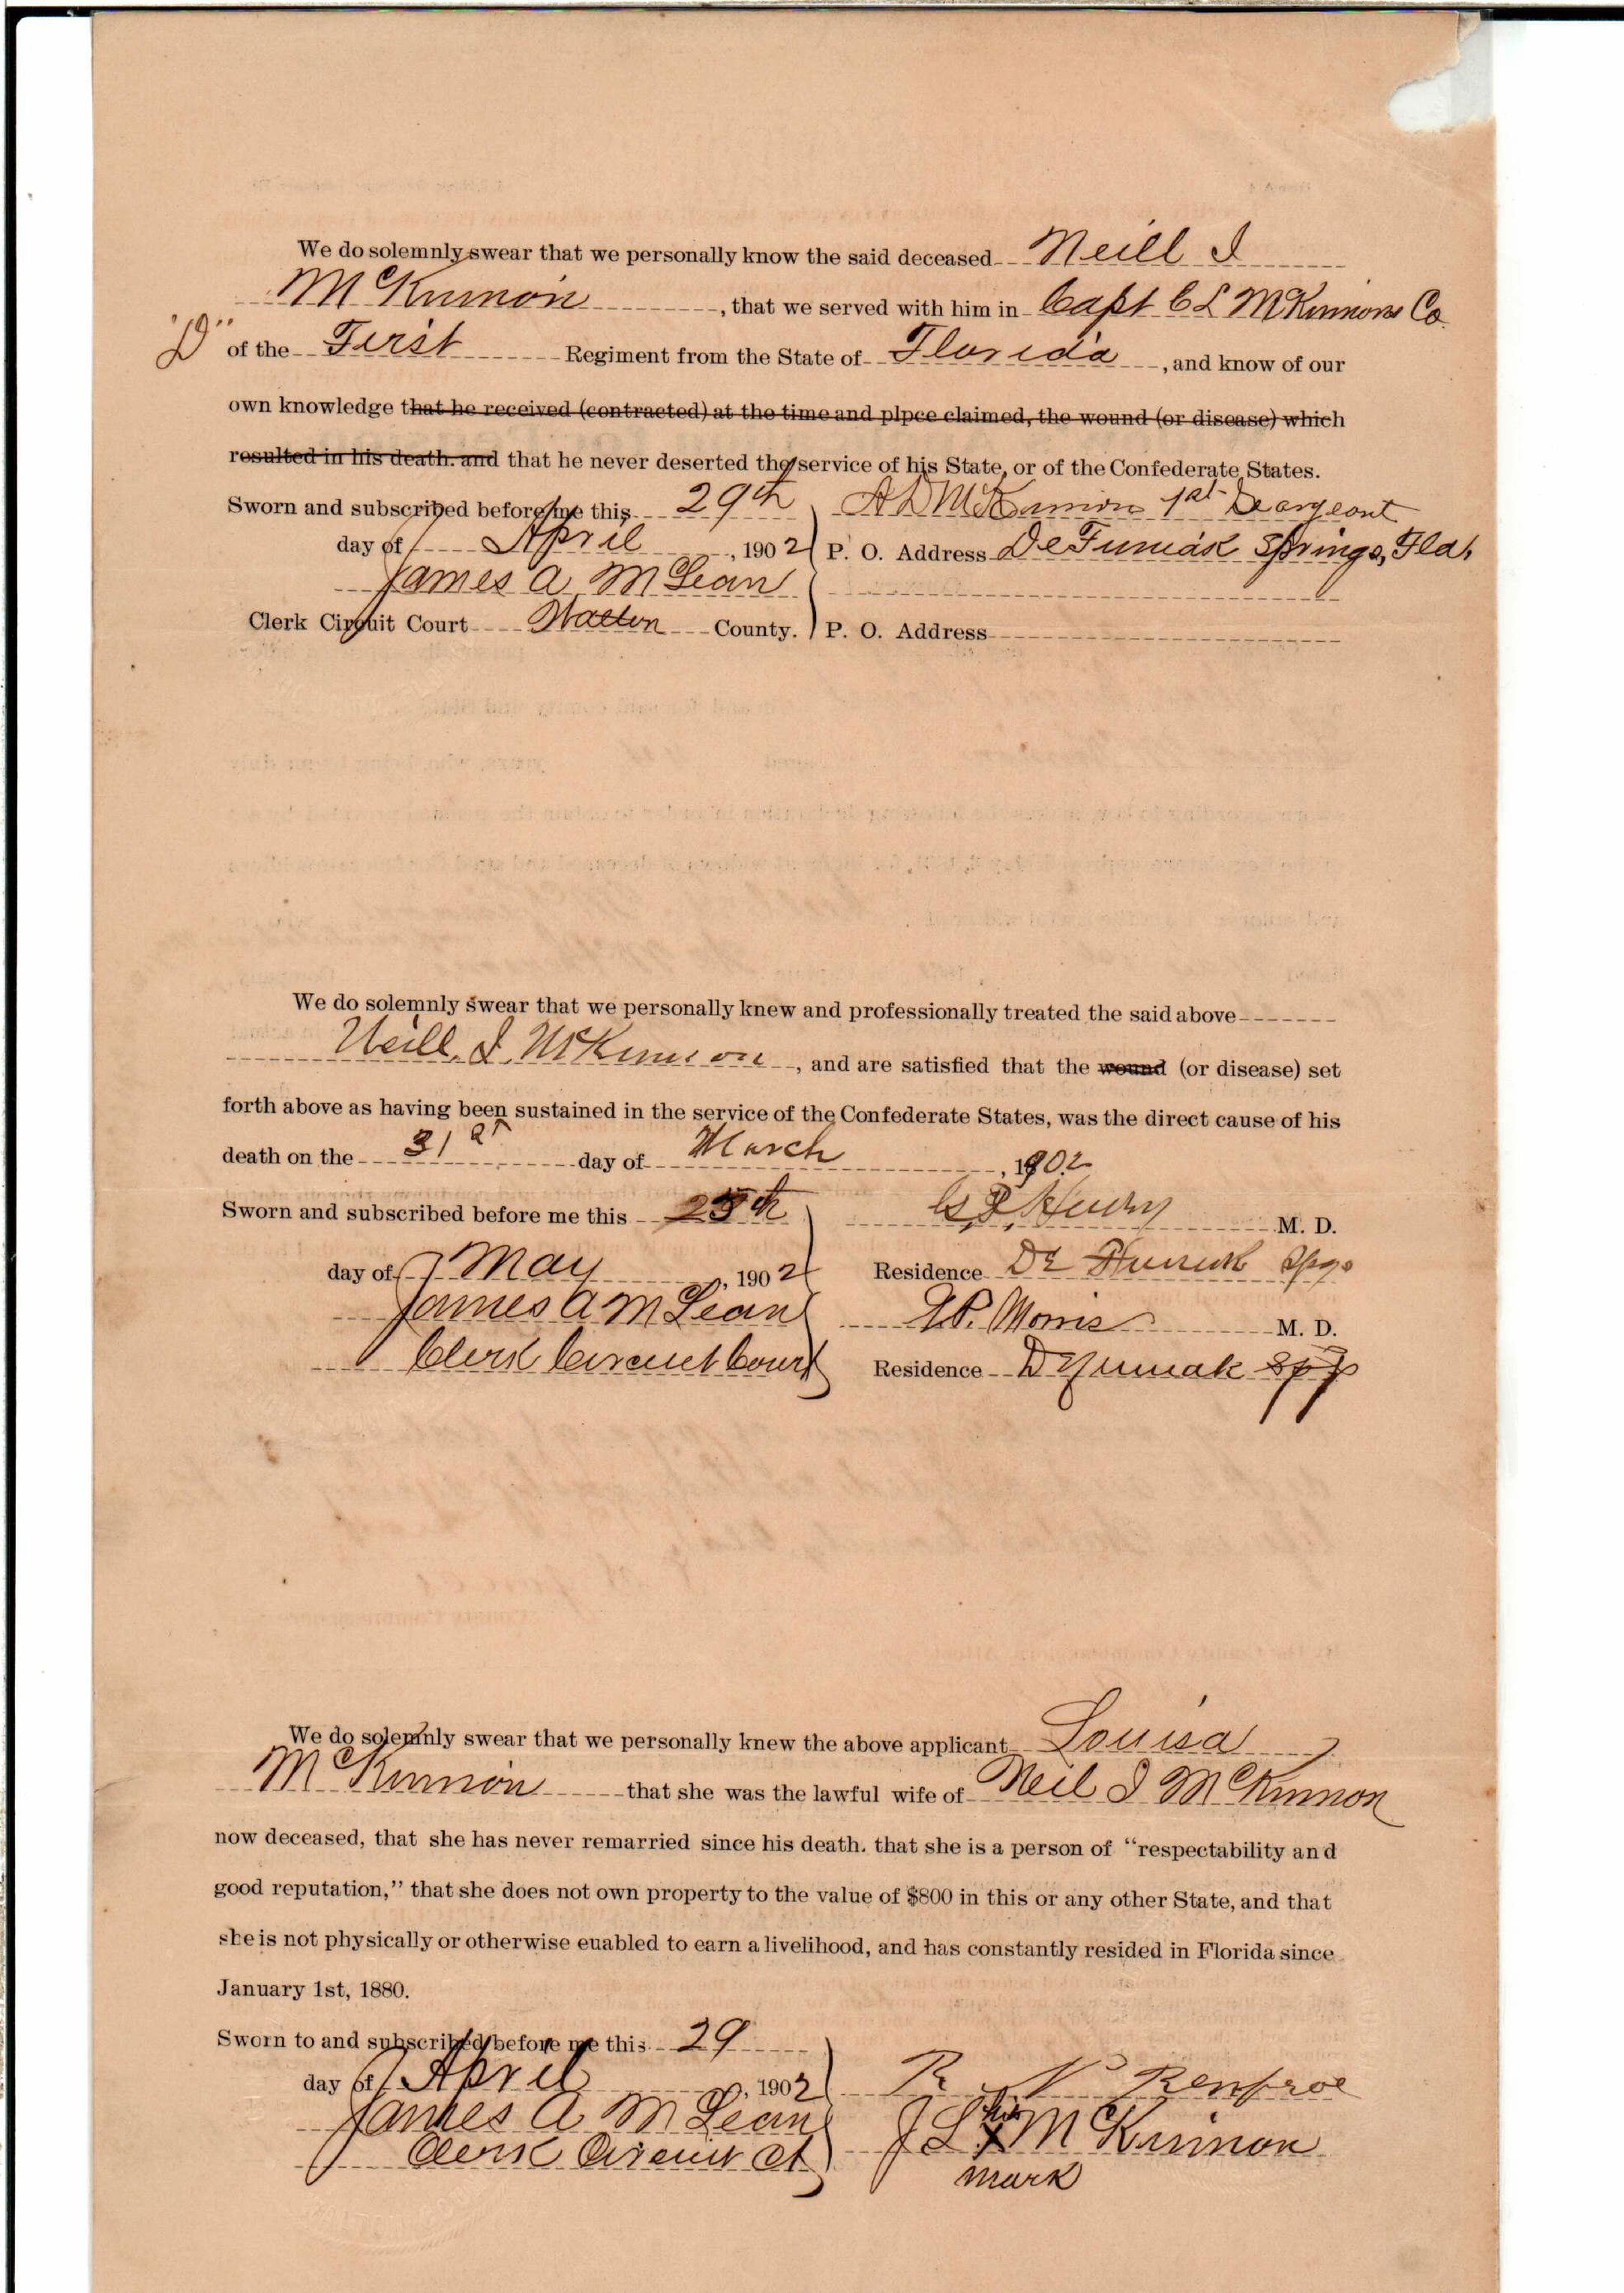 We do solemnly swear that we personally know the said deceased Neill I
McKinnon, that we served with him in Capt C L McKinnons Co
"D" of the First Regiment from the State of Florida, and know of our
own knowledge that he received (contracted) at the time and plpce claimed, the wound (or disease) which
resulted in his death. and that he never deserted the service of his State, or of the Confederate States.
Sworn and subscribed before me this 29th A D McKinnon 1st Seargeant
day of April, 1902 P. O. Address DeFuniak Springs, Fla,
James A McLean
Clerk Circuit Court Walton County. P. O. Address
We do solemnly swear that we personally knew and professionally treated the said above
Neill. I. McKinnon, and are satisfied that the wound (or disease) set
forth above as having been sustained in the service of the Confederate States, was the direct cause of his
death on the 31st day of March, 1902
Sworn and subscribed before me this M. D.
day of May, 1902 Residence De Funiak Spgs
James A McLean Morris M. D.
Clerk Circuit Court Residence Defuniak Spgs
We do solemnly swear that we personally knew the above applicant Louisa
McKinnon that she was the lawful wife of Neil I McKinnon
now deceased, that she has never remarried since his death. that she is a person of "respectability and
good reputation," that she does not own property to the value of $800 in this or any other State, and that
she is not physically or otherwise euabled to earn a livelihood, and has constantly resided in Florida since
January 1st, 1880.
Sworn to and subscribed before me this 29
day of April, 1902 R N Renfroe
James A McLean J L his x McKinnon
Clerk Circuit Ct mark